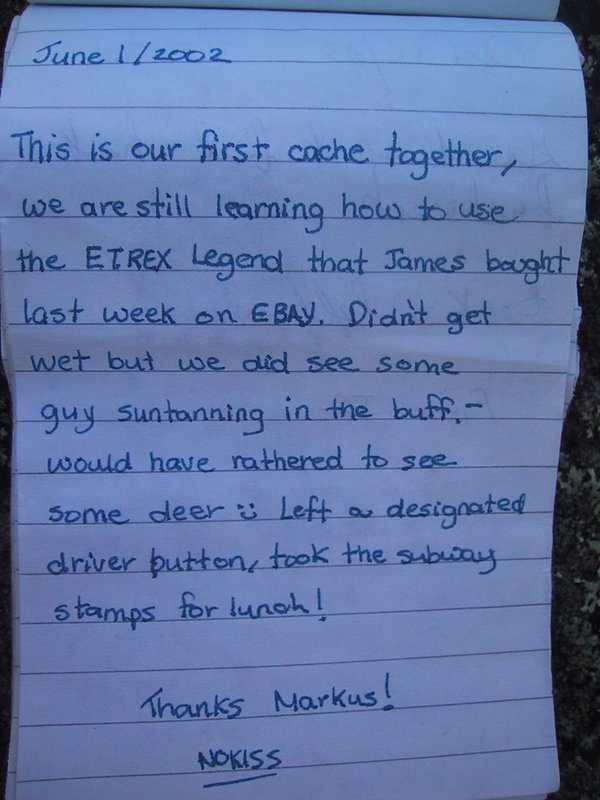 June 1/2002
This is our first cache together,
we are still learning how to use
the ETREX Legend that James bought
last week on EBAY. Didn't get
wet but we did see some
guy suntanning in the buff.-
would have rathered to see
some deer :) Left a designated
driver button, took the subway
stamps for lunch!
Thanks Markus!
NOKISS